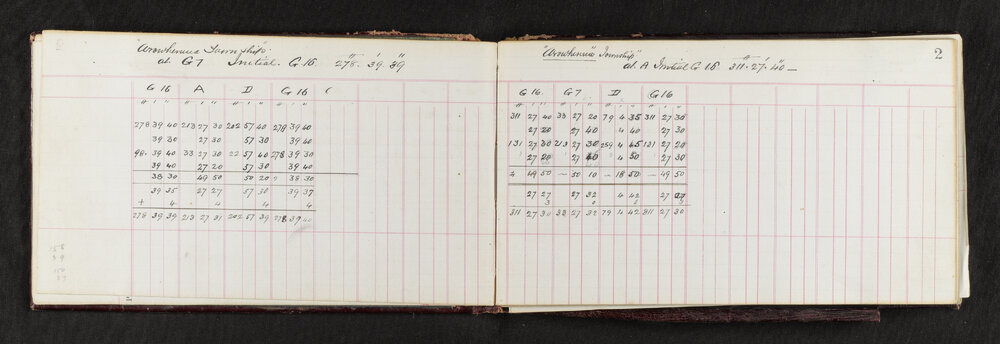 "Arowhenua Township".
at G7 Initial. G.16. 278°. 39'. 39"
G 16 A D G 16 C
° ' " ° ' " ° ' " ° ' "
278 39 40 213 27 30 202 57 40 278 39 40
39 30 27 30 57 30 39 40
98. 39 40 33 27 30 22 57 40 278 39 30
39 40 27 20 57 30 39 40
38 30 49 50 50 20 38 30
39 35 27 27 57 30 39 37
+ 4 4 4 4
278 39 39 213 27 31 202 57 39 278 39 40
158
39
2
"Arowhenua" Township"
at A Initial G 16 311°. 27'. 40" —
G 16. G 7 D G 16
° ' " ° ' " ° ' " ° ' "
311 27 40 33 27 20 79 4 35 311 27 30
27 20 27 40 4 40 27 30
131 27 30 213 27 30 259 4 45 131 27 20
27 20 27 40 4 50 27 30
49 50 — 50 10 — 18 50 — 49 50
27 27 27 32 4 42 27 27
3 3
311 27 30 33 27 32 79 4 42 311 27 30